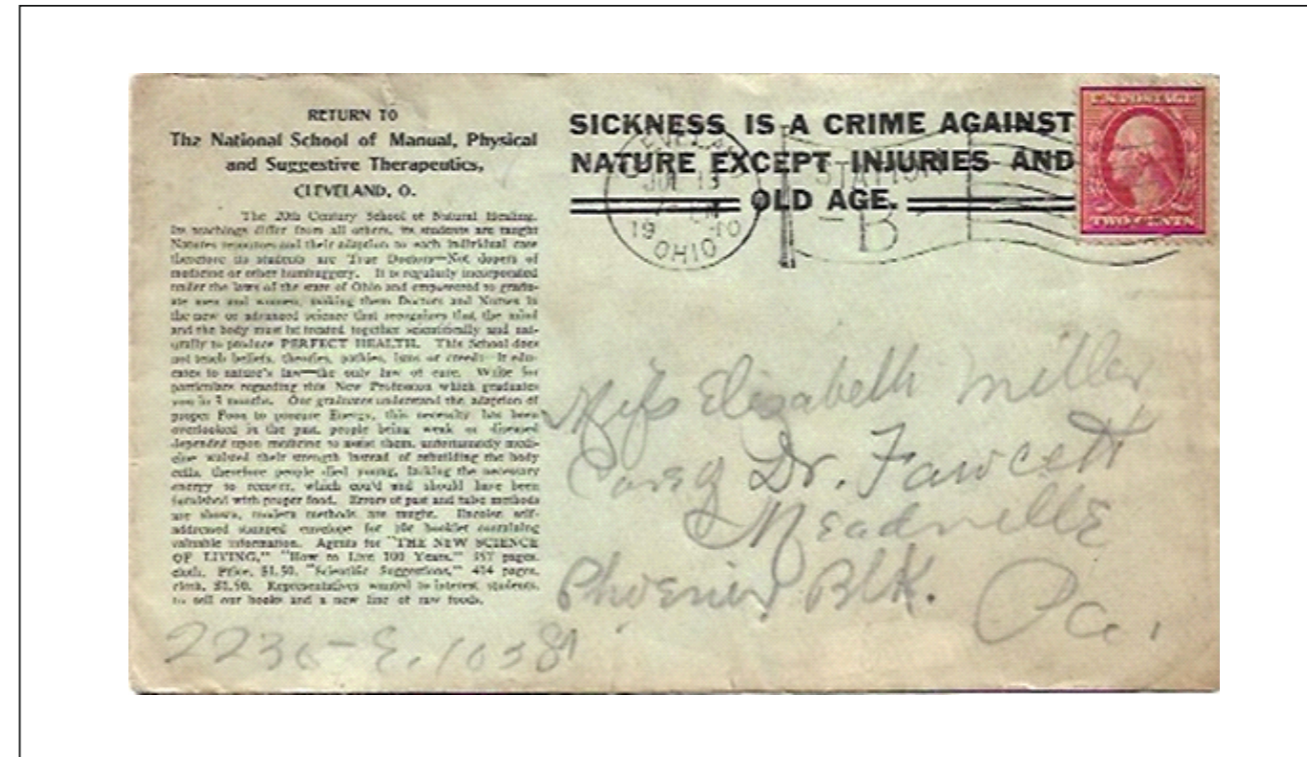 RETURN TO
The National School of Manual, Physical
and Suggestive Therapeutics,
CLEVELAND, O.
The 20th Century School of Natural Healing.
Its teachings differ from all others, its students are taught
Natures resources and their adaption to each individual case
therefore its students are True Doctors—Not dopers of
medicine or other humbuggery. It is regularly incorporated
under the laws of the state of Ohio and empowered to gradu-
ate men and women, making them Doctors and Nurses in
the new or advanced science that recognizes that the mind
and the body must be treated together scientifically and nat-
urally to produce PERFECT HEALTH. This School does
not teach beliefs, theories, pathies, isms or creeds—It edu-
cates to nature's law—the only law of cure. Write for
particulars regarding this New Profession which graduates
you in 3 months. Our graduates understand the adaption of
proper Food to procure Energy, this necessity has been
overlooked in the past, people being weak or diseased
depended upon medicine to assist them, unfortunately medi-
cine wasted their strength instead of rebuilding the body
cells, therefore people died young, lacking the necessary
energy to recover, which could and should have been
furnished with proper food. Errors of past and false methods
are shown, modern methods are taught. Enclose self-
addressed stamped envelope for 10c booklet containing
valuable information. Agents for "THE NEW SCIENCE
OF LIVING," "How to Live 100 Years," 357 pages,
cloth, Price, $1.50, "Scientific Suggestions," 414 pages,
cloth, $2.50. Representatives wanted to interest students,
to sell our books and a new line of raw foods.
SICKNESS IS A CRIME AGAINST
NATURE EXCEPT INJURIES AND
OLD AGE.
JUL 13
19 10
OHIO
STATION
B
U.S. POSTAGE
TWO CENTS
Miss Elizabeth Miller
Care of Dr. Fawcett
Meadville
Phoenix Blk. Pa.